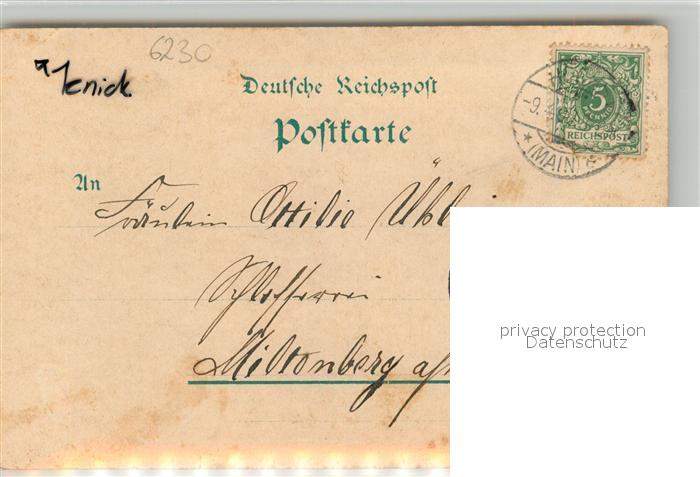 6230
knick
Deutsche Reichspost
Postkarte
5
PFENNIG
REICHSPOST
-9.
(MAIN)
An
Fräulein Ottilie Uhl
Schlosserei
Miltenberg a/
privacy protection
Datenschutz